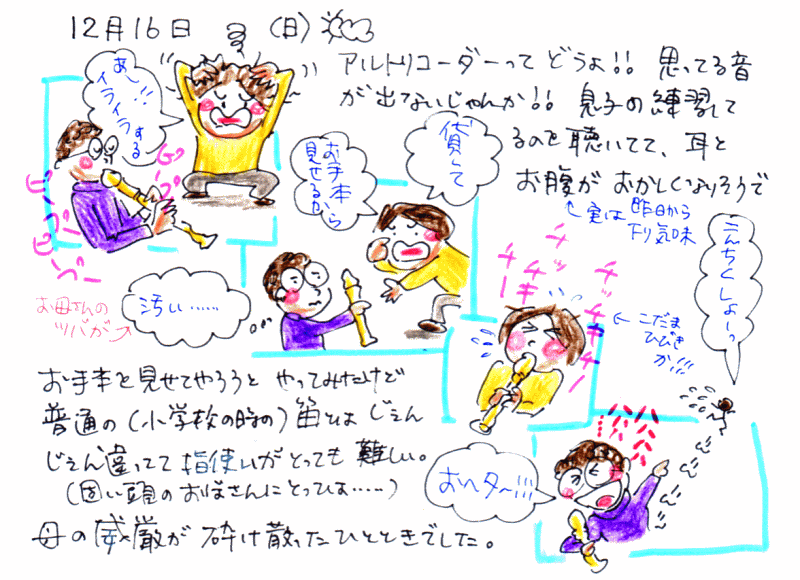 12月16日 (日)
アルトリコーダーってどうよ!! 思ってる音
が出てないじゃんか!! 息子の練習して
るのを聴いてて、耳と
お腹がおかしくなりそうで
←実は昨日から
下り気味
あ〜!!
イライラする
ピ〜プ〜
ピ〜ブ〜
ピ〜ブ〜
貸して
お手本
見せるから
お母さんの
ツバが→
汚い……
チッチキチー
チッチキチー
←こだま
ひびき
か!!!
こんちくしょーっ
お手本を見せてやろうとやってみたけど
普通の(小学校の時の)笛とは じぇん
じぇん違ってて指使いがとっても難しい。
(固い頭のおばさんにとっては……)
母の威厳が砕け散ったひとときでした。
おヘタ〜!!!